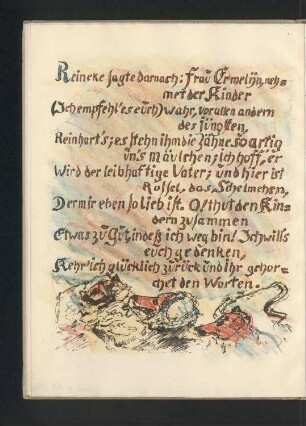 Reincke sagte darnach: Frau Ermelÿn, neh-
met der Kinder
(Ich empfehl'es euch) wahr, vor allen andern
des jüngsten,
Reinhart's; es stehn ihm die Zähne so artig
um's mäulchen; ich hoff, er
Wird der leibhaftige Vater; und hier ist
Rossel, das Schelmchen,
Der mir eben so lieb ist. O! thut den Kin-
dern zusammen
Etwas zu Gut, indeß ich weg bin! Ich will's
euch gedenken,
Kehr' ich glücklich zurück und Ihr gehor-
chet den Worten.